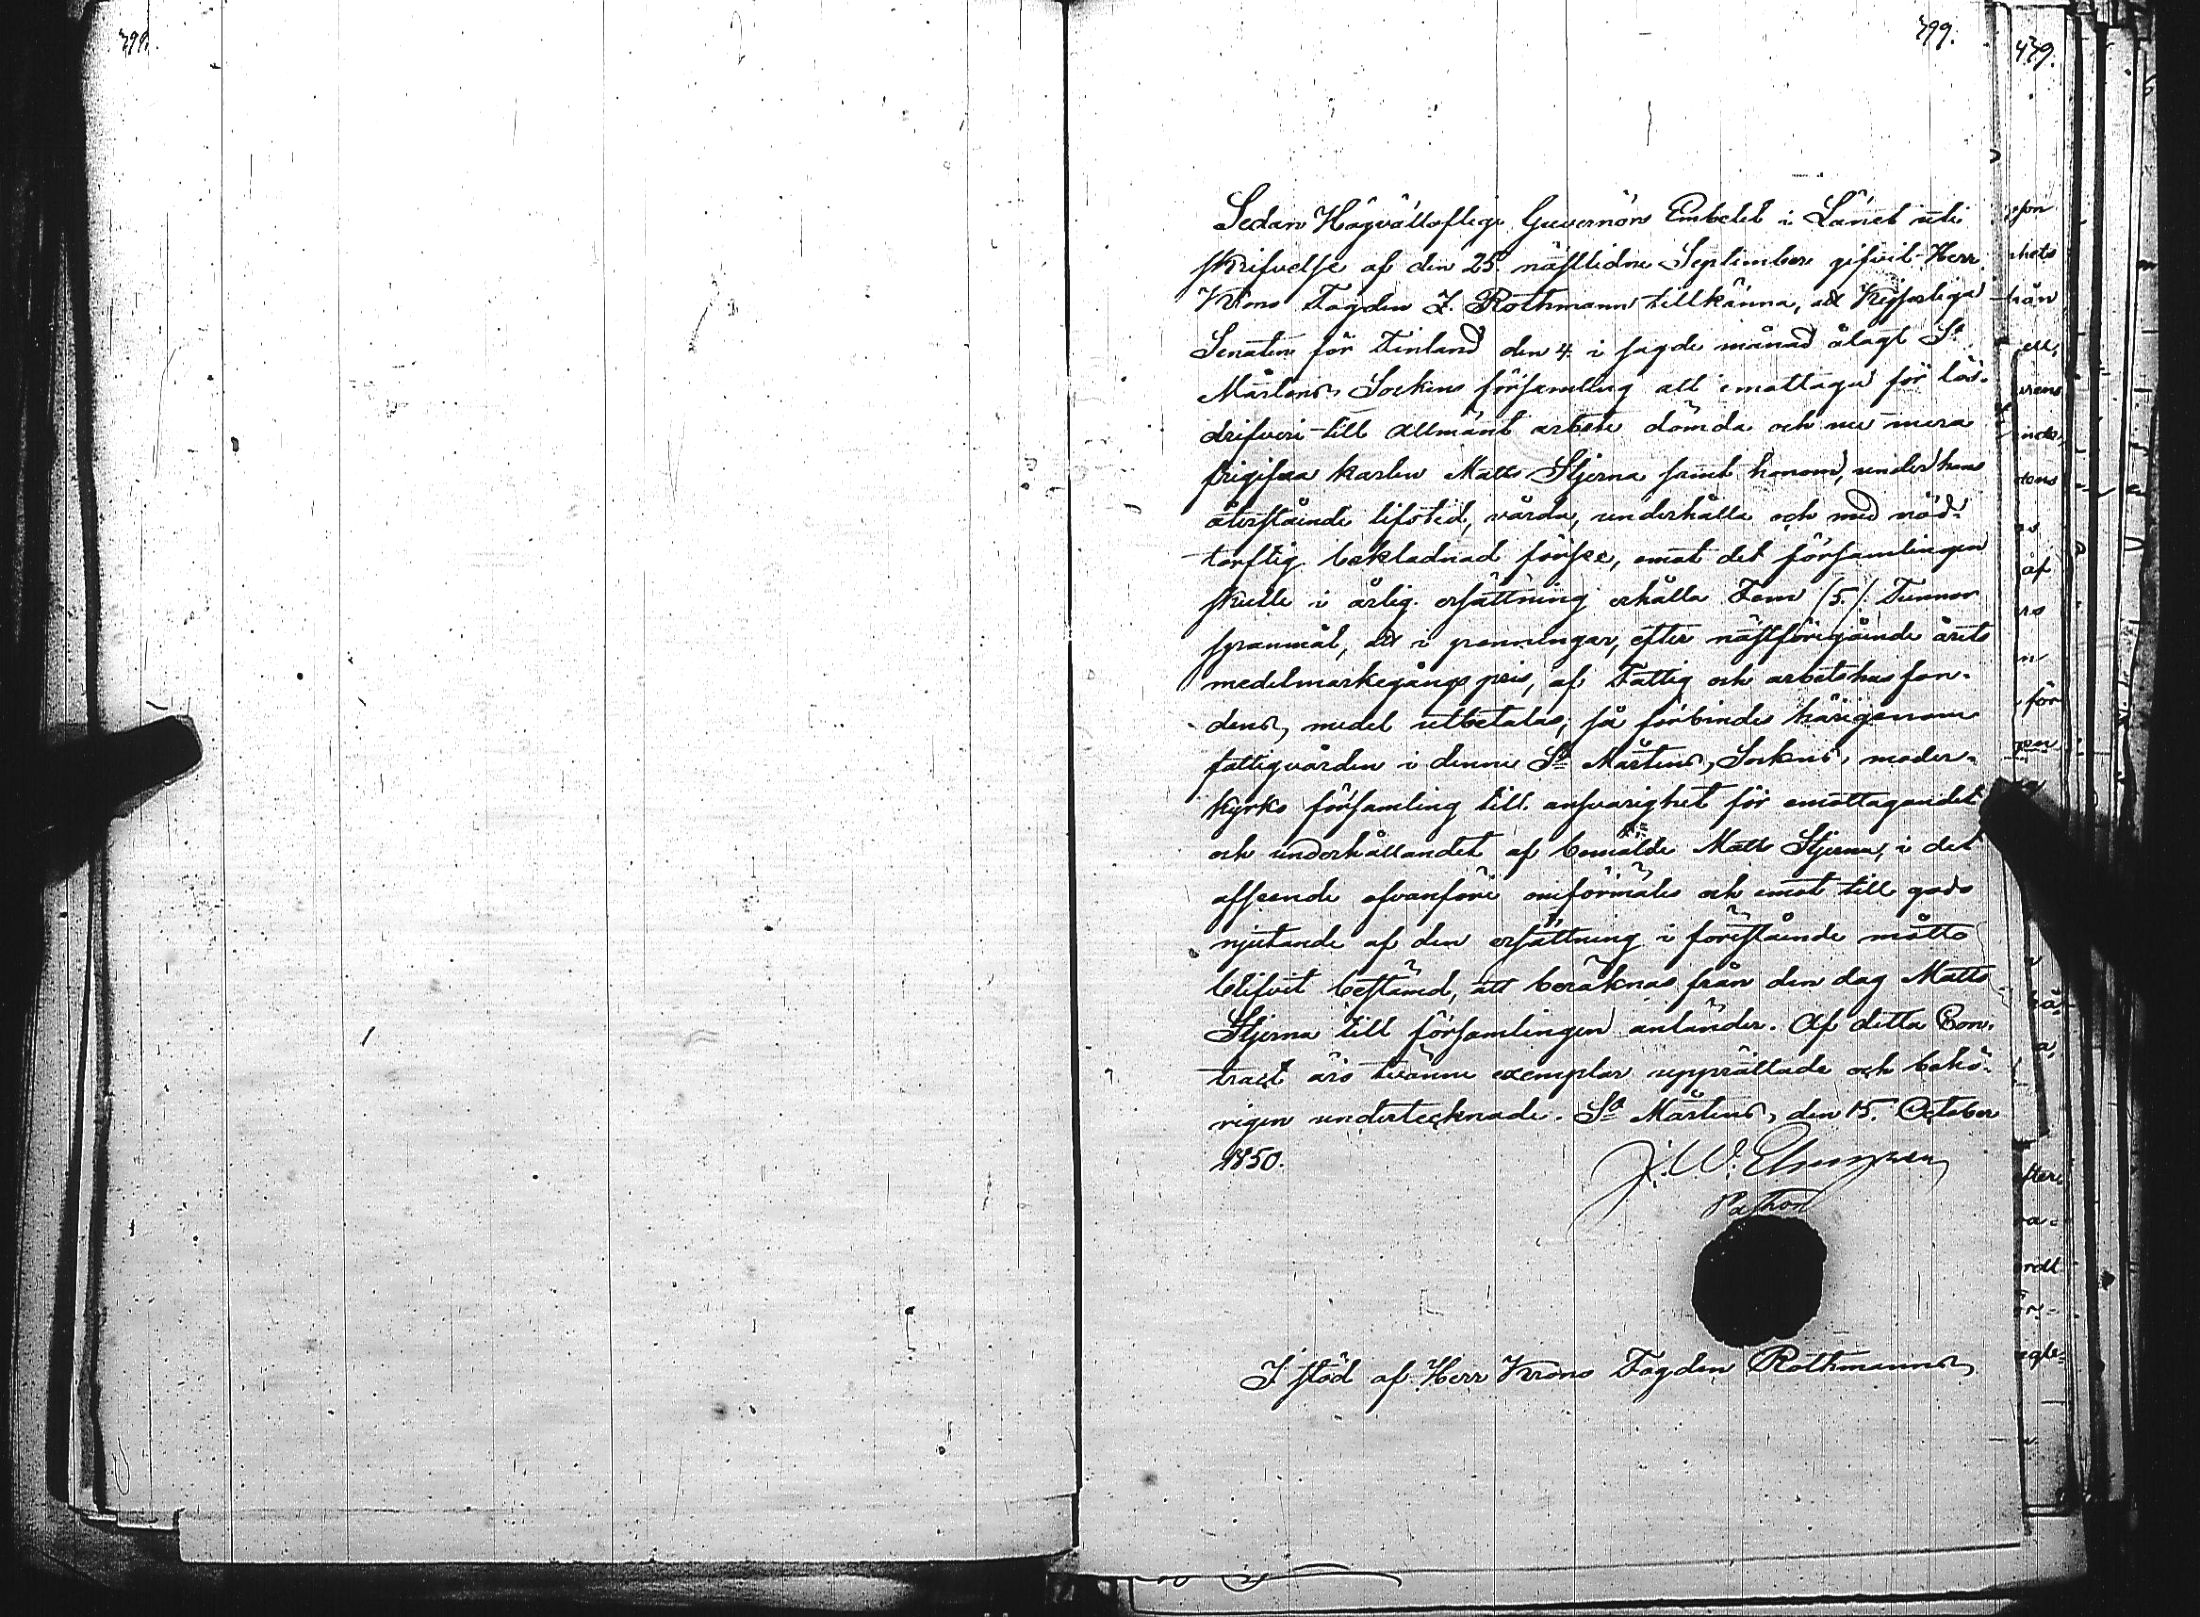 399.
399.
439.
Sedan Högvällofliga Guvernörs Embetet i Länet uti
skrifvelse af den 25. nästlidne September gifvit Herr
Krono Fogden I. Rothmann tillkänna, att Kejserliga
Senaten för Finland den 4. i sagde månad ålagt S:t
Mårtens Sockens församling att emottaga för lös-
drifveri till allmänt arbete dömda och nu mera
frigifna karlen Matts Stjerna samt honom, under hans
återstående lifstid, vårda, underhålla och med nöd-
torftig beklädnad förse, emot det församlingen
skulle i årlig ersättning erhålla Fem /5./ Tunnor
spanmål, att i penningar, efter nästföregående årets
medelmarkegångs pris, af Fattig och arbetshus fon-
dens, medel utbetalas; så förbindes härigenom
fattigvården i denne S:t Mårtens, Sockens, moder-
kyrko församling till ansvarighet för emottagandet
och underhållandet af bemälde Matts Stjerna, i det
afseende ofvanföre omförmäles och emot till godo
njutande af den ersättning i föreståënde måtto
blifvit bestämd, att beräknas från den dag Matts
Stjerna till församlingen anländer. Af detta Con-
tract äro tvänne exemplar upprättade och behö-
rigen undertecknade. S:t Mårtens, den 15. October
1850.
J. W.
Pastor
I stöd af Herr Krono Fogden Rothmanns